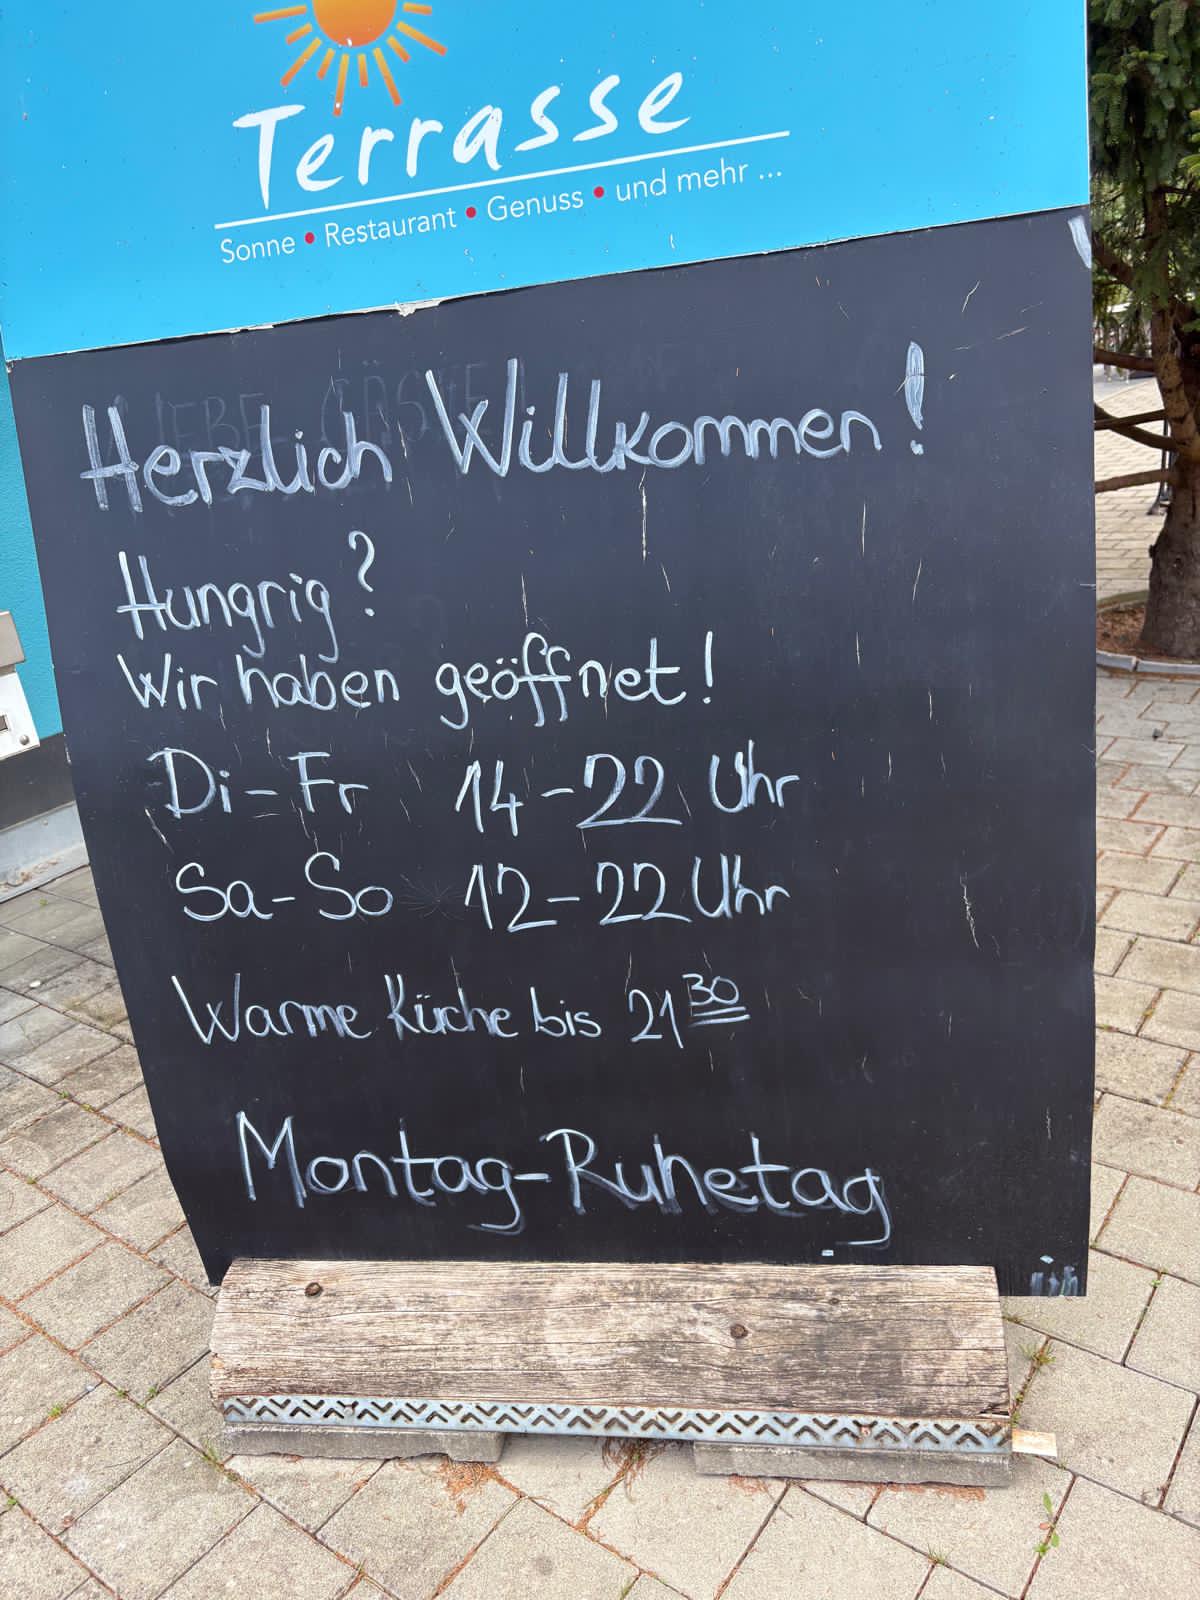 Terrasse
Sonne • Restaurant • Genuss • und mehr ...
Herzlich Willkommen!
Hungrig?
Wir haben geöffnet!
Di - Fr 14 - 22 Uhr
Sa - So 12 - 22 Uhr
Warme Küche bis 21 30
Montag - Ruhetag